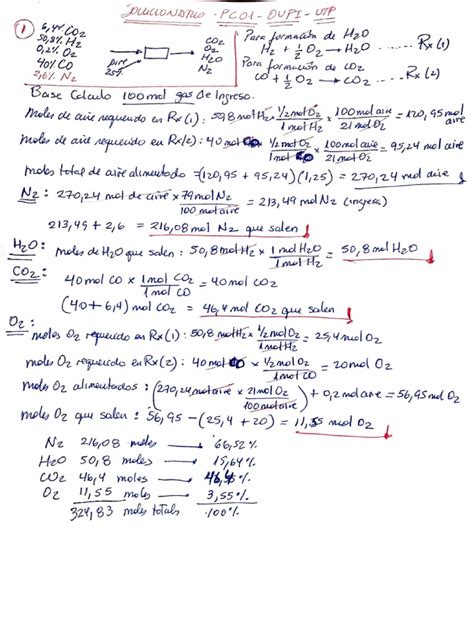 SOLUCIONARIO - PC01 - OUPI - UTP
① 6,4% CO2
50,8% H2
0,2% O2
40% CO
2,6% N2
aire
25%
CO2
O2
H2O
N2
Para formación de H2O
H2 + ½ O2 → H2O ---- Rx (1)
Para formación de CO2
CO + ½ O2 → CO2 ---- Rx (2)
Base Calculo 100 mol gas de Ingreso.
moles de aire requerido en Rx (1) : 50,8 mol H2 x ½ mol O2 / 1 mol H2 x 100 mol aire / 21 mol O2 = 120,95 mol aire
moles de aire requerido en Rx (2) : 40 mol CO x ½ mol O2 / 1 mol CO x 100 mol aire / 21 mol O2 = 95,24 mol aire
moles total de aire alimentado = (120,95 + 95,24)(1,25) = 270,24 mol aire
N2 : 270,24 mol de aire x 79 mol N2 / 100 mol aire = 213,49 mol N2 (ingresa)
213,49 + 2,6 = 216,08 mol N2 que salen
H2O : moles de H2O que salen : 50,8 mol H2 x 1 mol H2O / 1 mol H2 = 50,8 mol H2O
CO2 : 40 mol CO x 1 mol CO2 / 1 mol CO = 40 mol CO2
(40 + 6,4) mol CO2 = 46,4 mol CO2 que salen
O2 :
moles O2 requerido en Rx (1) : 50,8 mol H2 x ½ mol O2 / 1 mol H2 = 25,4 mol O2
moles O2 requerido en Rx (2) : 40 mol CO x ½ mol O2 / 1 mol CO = 20 mol O2
moles O2 alimentados : (270,24 mol aire x 21 mol O2 / 100 mol aire) + 0,2 mol aire = 56,95 mol O2
moles O2 que salen : 56,95 - (25,4 + 20) = 11,55 mol O2
N2 216,08 moles → 66,52%
H2O 50,8 moles → 15,64%
CO2 46,4 moles →
O2 11,55 moles → 3,55%
324,83 moles totals 100%